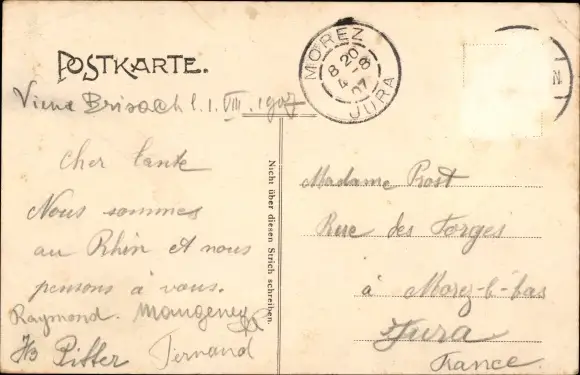 POSTKARTE.
MOREZ
8 20
4 - 8
07
JURA
N
Vieux Brisach l. 1. VIII. 1907
Cher tante
Nous sommes
au Rhin et nous
pensons à vous.
Raymond. Maugeney
Pitter Fernand
Nicht über diesen Strich schreiben.
Madame Prost
Rue des Forges
à Morez-le-bas
Jura
France.